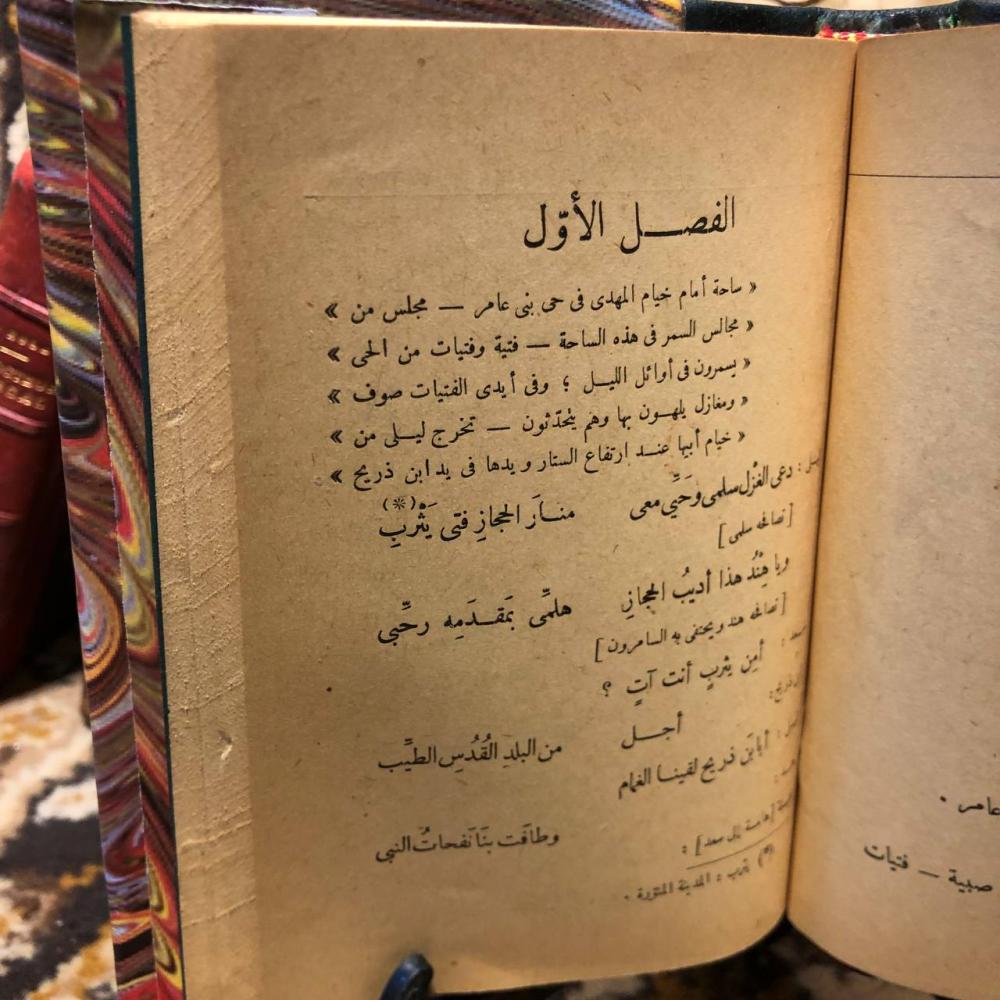 الفصل الأوّل
« ساحة أمام خيام المهدى فى حى بنى عامر — مجلس من »
« مجالس السمر فى هذه الساحة — فتية وفتيات من الحى »
« يسمرون فى أوائل الليل ؛ وفى أيدى الفتيات صوف »
« ومغازل يلهون بها وهم يتحدّثون — تخرج ليلى من »
« خيام أبيها عند ارتفاع الستار ويدها فى يد ابن ذريح »
: دعى الغَزْل سلمى وحَيِّى معى منارَ الحجازِ فتى يَثْربِ (*)
[تصافحه سلمى]
ويا هِنْدُ هذا أديبُ الحجازِ هلمِّى بمَقدَمِه رحِّبى
[تصافحه هند ويحتفى به السامرون]
: أمِن يثربٍ أنت آتٍ ؟
أجل من البلدِ القُدُسِ الطيِّب
: أيابنَ ذريح لقينا الغمام وطافت بنَا نفحاتُ النبى
[هامسة إلى سعد] :
(*) يثرب : المدينة المنوّرة .
عامر .
صبية — فتيات